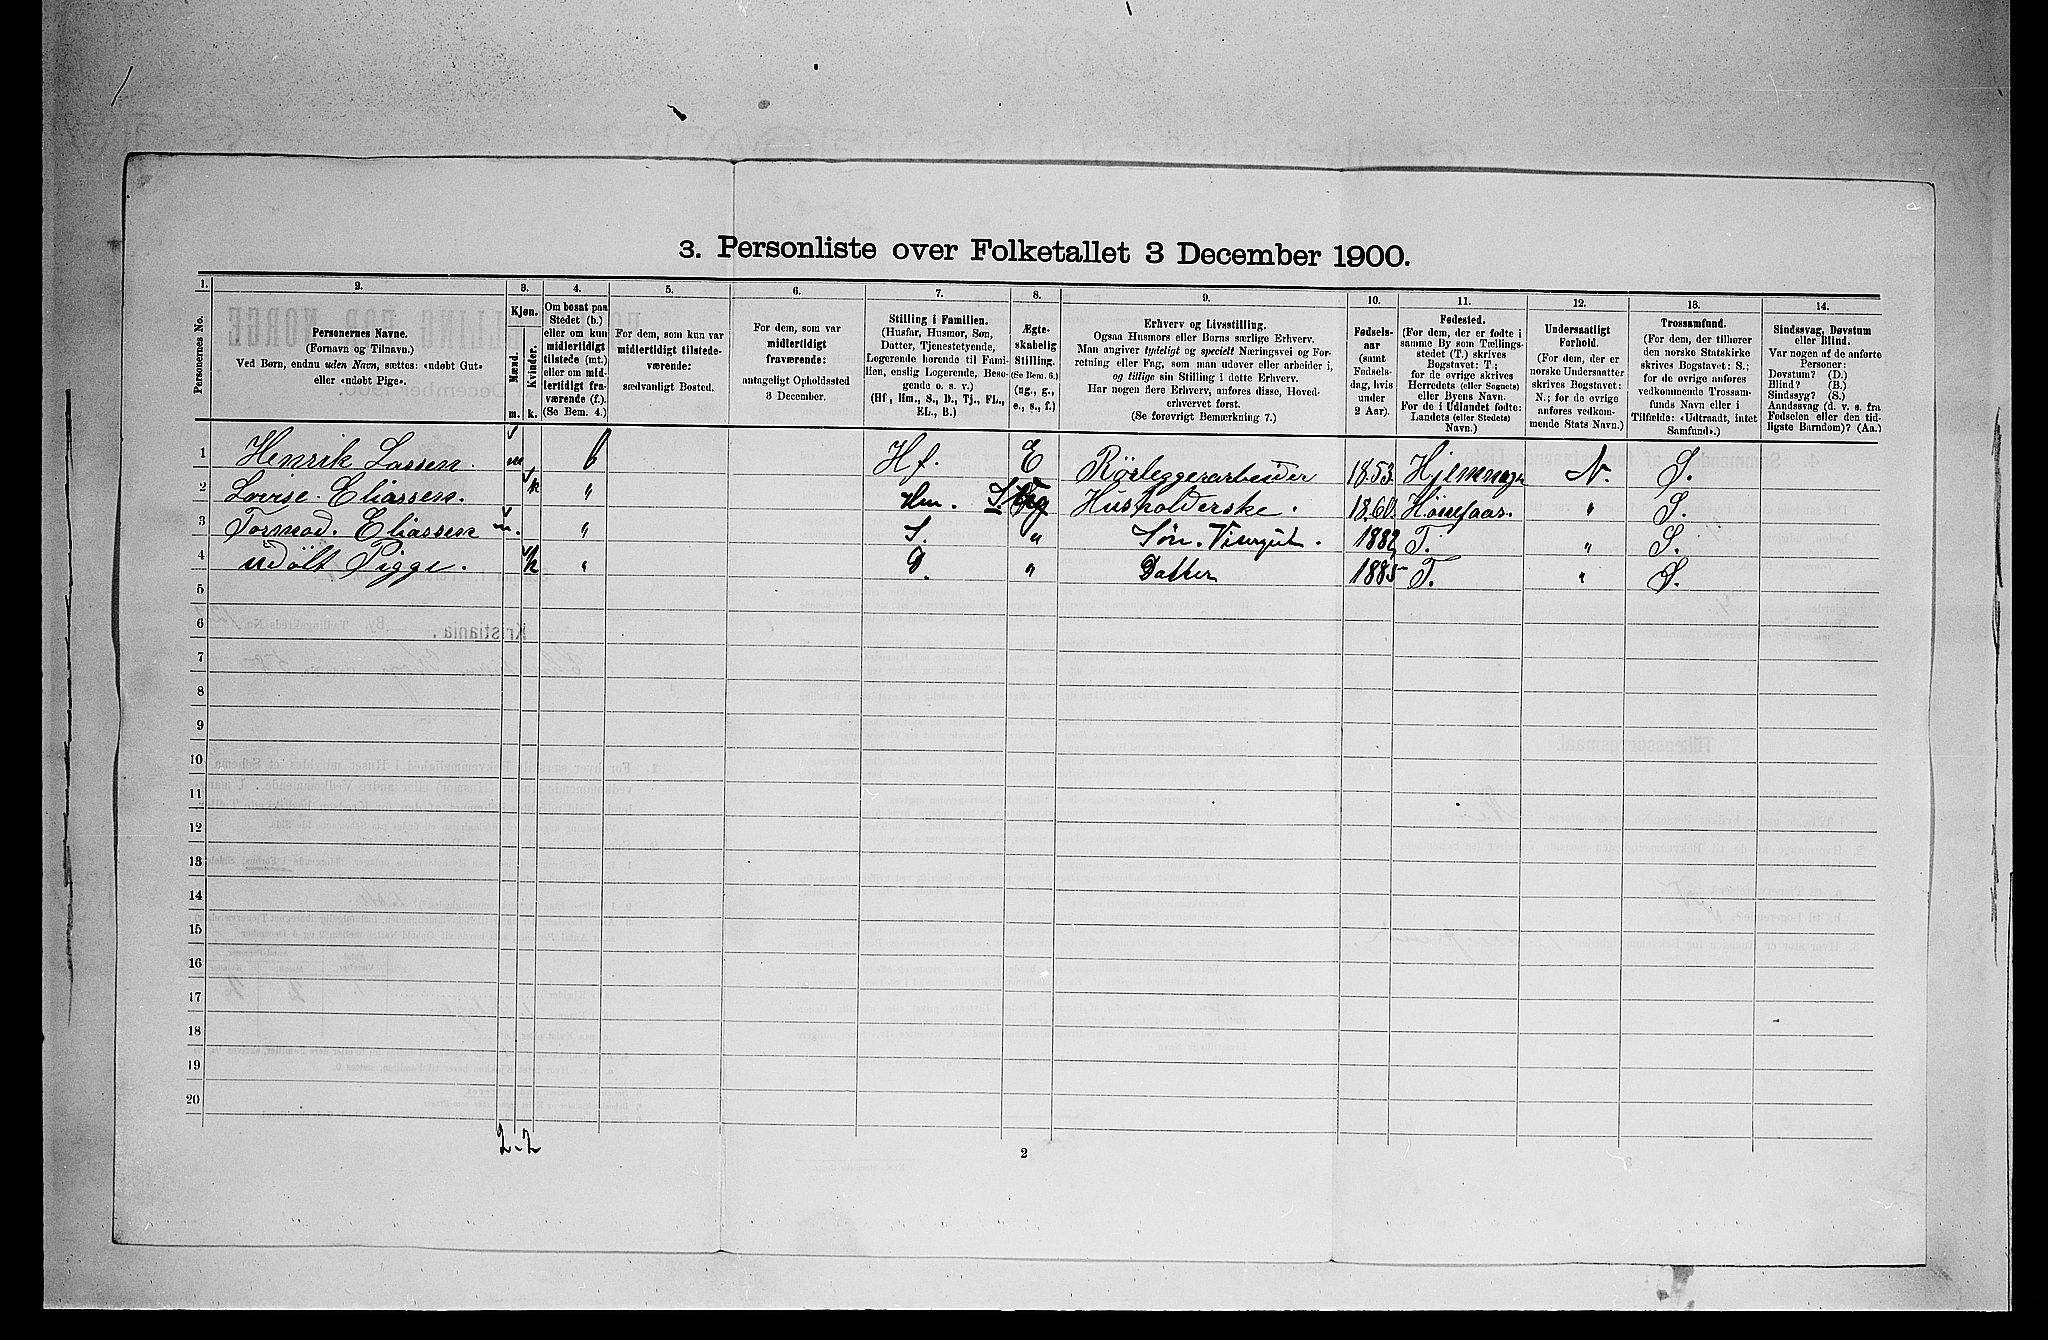 3. Personliste over Folketallet 3 December 1900.
1. 2. 3. 4. 5. 6. 7. 8. 9. 10. 11. 12. 13. 14.
Personernes No.
Personernes Navne.
(Fornavn og Tilnavn.)
Ved Børn, endnu uden Navn, sættes: «udøbt Gut»
eller «udøbt Pige».
Kjøn.
Mænd.
Kvinder.
m. k.
Om bosat paa
Stedet (b.)
eller om kun
midlertidigt
tilstede (mt.)
eller om mid-
lertidigt fra-
værende (f.).
(Se Bem. 4.)
For dem, som kun var
midlertidigt tilstede-
værende:
sædvanligt Bosted.
For dem, som var
midlertidigt
fraværende:
antageligt Opholdssted
3 December.
Stilling i Familien.
(Husfar, Husmor, Søn,
Datter, Tjenestetyende,
Logerende hørende til Fami-
lien, enslig Logerende, Besø-
gende o. s. v.)
(Hf, Hm., S., D., Tj., FL.,
EL., B.)
Ægte-
skabelig
Stilling.
(Se Bem. 6.)
(ug., g.,
e., s., f.)
Erhverv og Livsstilling.
Ogsaa Husmors eller Børns særlige Erhverv.
Man angiver tydeligt og specielt Næringsvei og For-
retning eller Fag, som man udøver eller arbeider i,
og tillige sin Stilling i dette Erhverv.
Har nogen flere Erhverv, anføres disse, Hoved-
erhvervet først.
(Se forøvrigt Bemærkning 7.)
Fødsels-
aar
(samt
Fødsels-
dag, hvis
under
2 Aar).
Fødested.
(For dem, der er fødte i
samme By som Tællings-
stedet (T.) skrives
Bogstavet: T.;
for de øvrige skrives
Herredets (eller Sognets)
eller Byens Navn.
For de i Udlandet fødte:
Landets (eller Stedets)
Navn.)
Undersaatligt
Forhold.
(For dem, der er
norske Undersaatter
skrives Bogstavet:
N.; for de øvrige
anføres vedkom-
mende Stats Navn.)
Trossamfund.
(For dem, der tilhører
den norske Statskirke
skrives Bogstavet: S.;
for de øvrige anføres
vedkommende Trossam-
funds Navn eller i
Tilfælde: «Udtraadt, intet
Samfund».)
Sindssvag, Døvstum
eller Blind.
Var nogen af de anførte
Personer:
Døvstum? (D.)
Blind? (B.)
Sindssyg? (S.)
Aandssvag (d. v. s. fra
Fødselen eller den tid-
ligste Barndom)? (Aa.)
1 Henrik Lassen. m b Hf. E Rörleggerarbeider 1853. N. S.
2 Lovise. Eliassen. k " Hm. Husholderske. 1860. Hönefoss. " S.
3 Tormod. Eliassen m. " S. " Sön. Visergut. 1882 T. " S.
4 udölt Pigge. k " D. " Datter 1885 T. " S.
5
6
7
8
9
10
11
12
13
14
15
16
17
18
19
20
2. 2
2